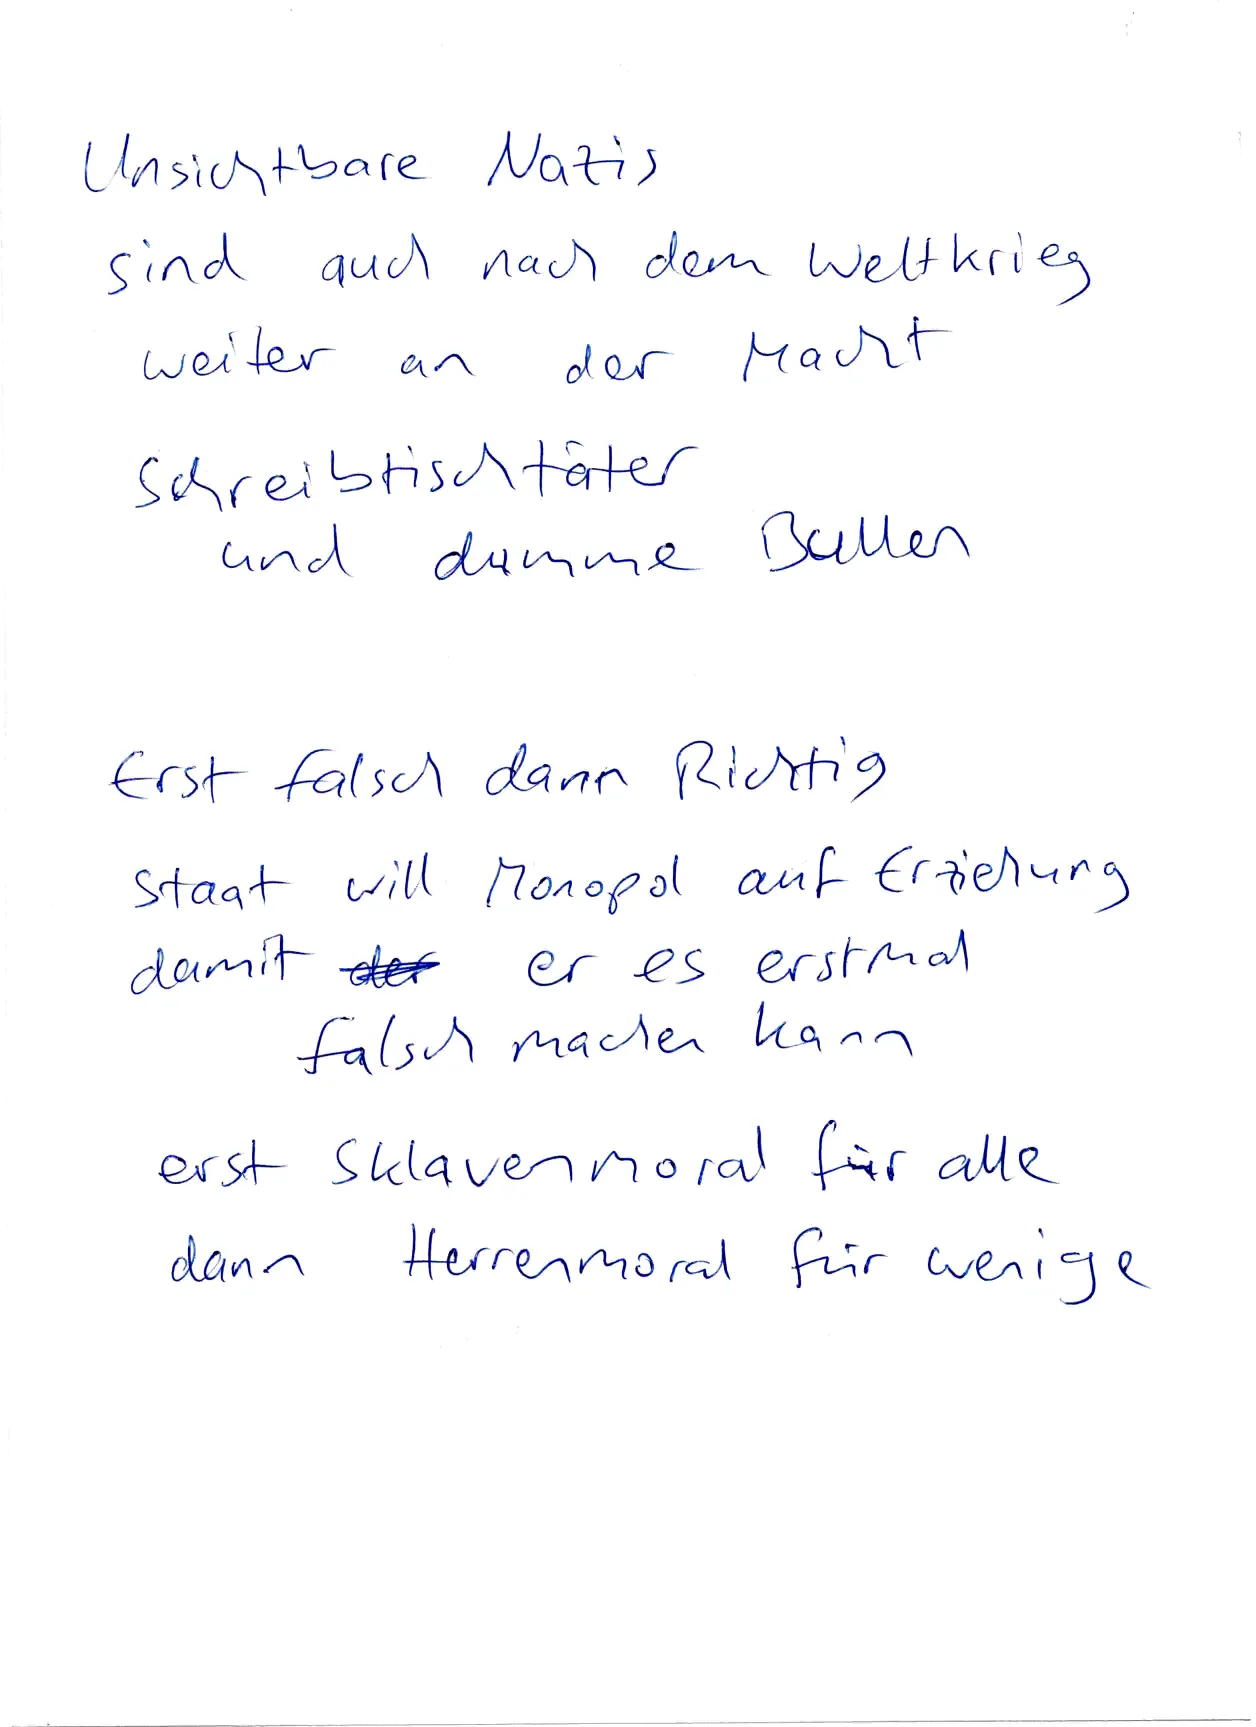 Unsichtbare Nazis
sind auch nach dem Weltkrieg
weiter an der Macht
Schreibtischtäter
und dumme Bullen
Erst falsch dann Richtig
Staat will Monopol auf Erziehung
damit der er es erstmal
falsch machen kann
erst Sklavenmoral für alle
dann Herrenmoral für wenige